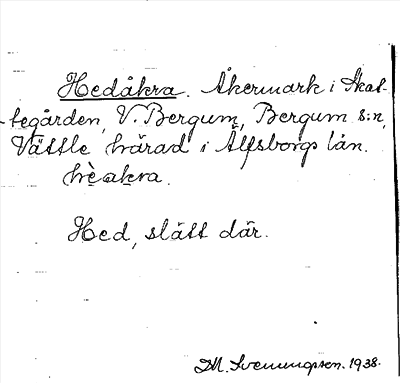 Hedåkra. Åkermark i Skat-
tegården, V. Bergum, Bergum s:n,
Vättle härad i Älfsborgs län.
hèakra.
Hed, slätt där.
M. Svenungsen. 1938.